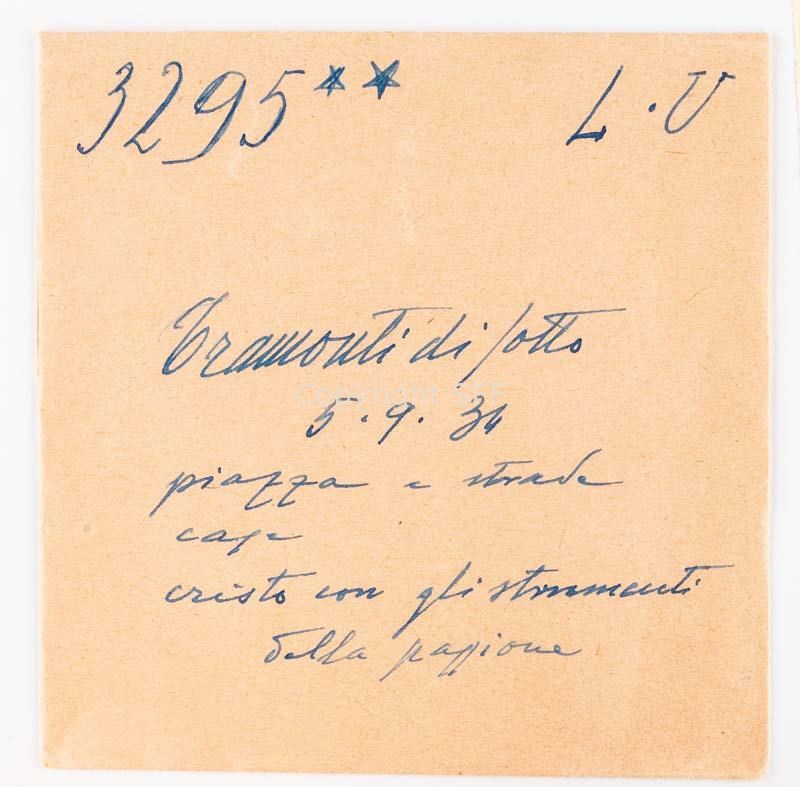 3295** L.U
Tramonti di sotto
5.9.34
piazza e strade
case
cristo con gli strumenti
della passione